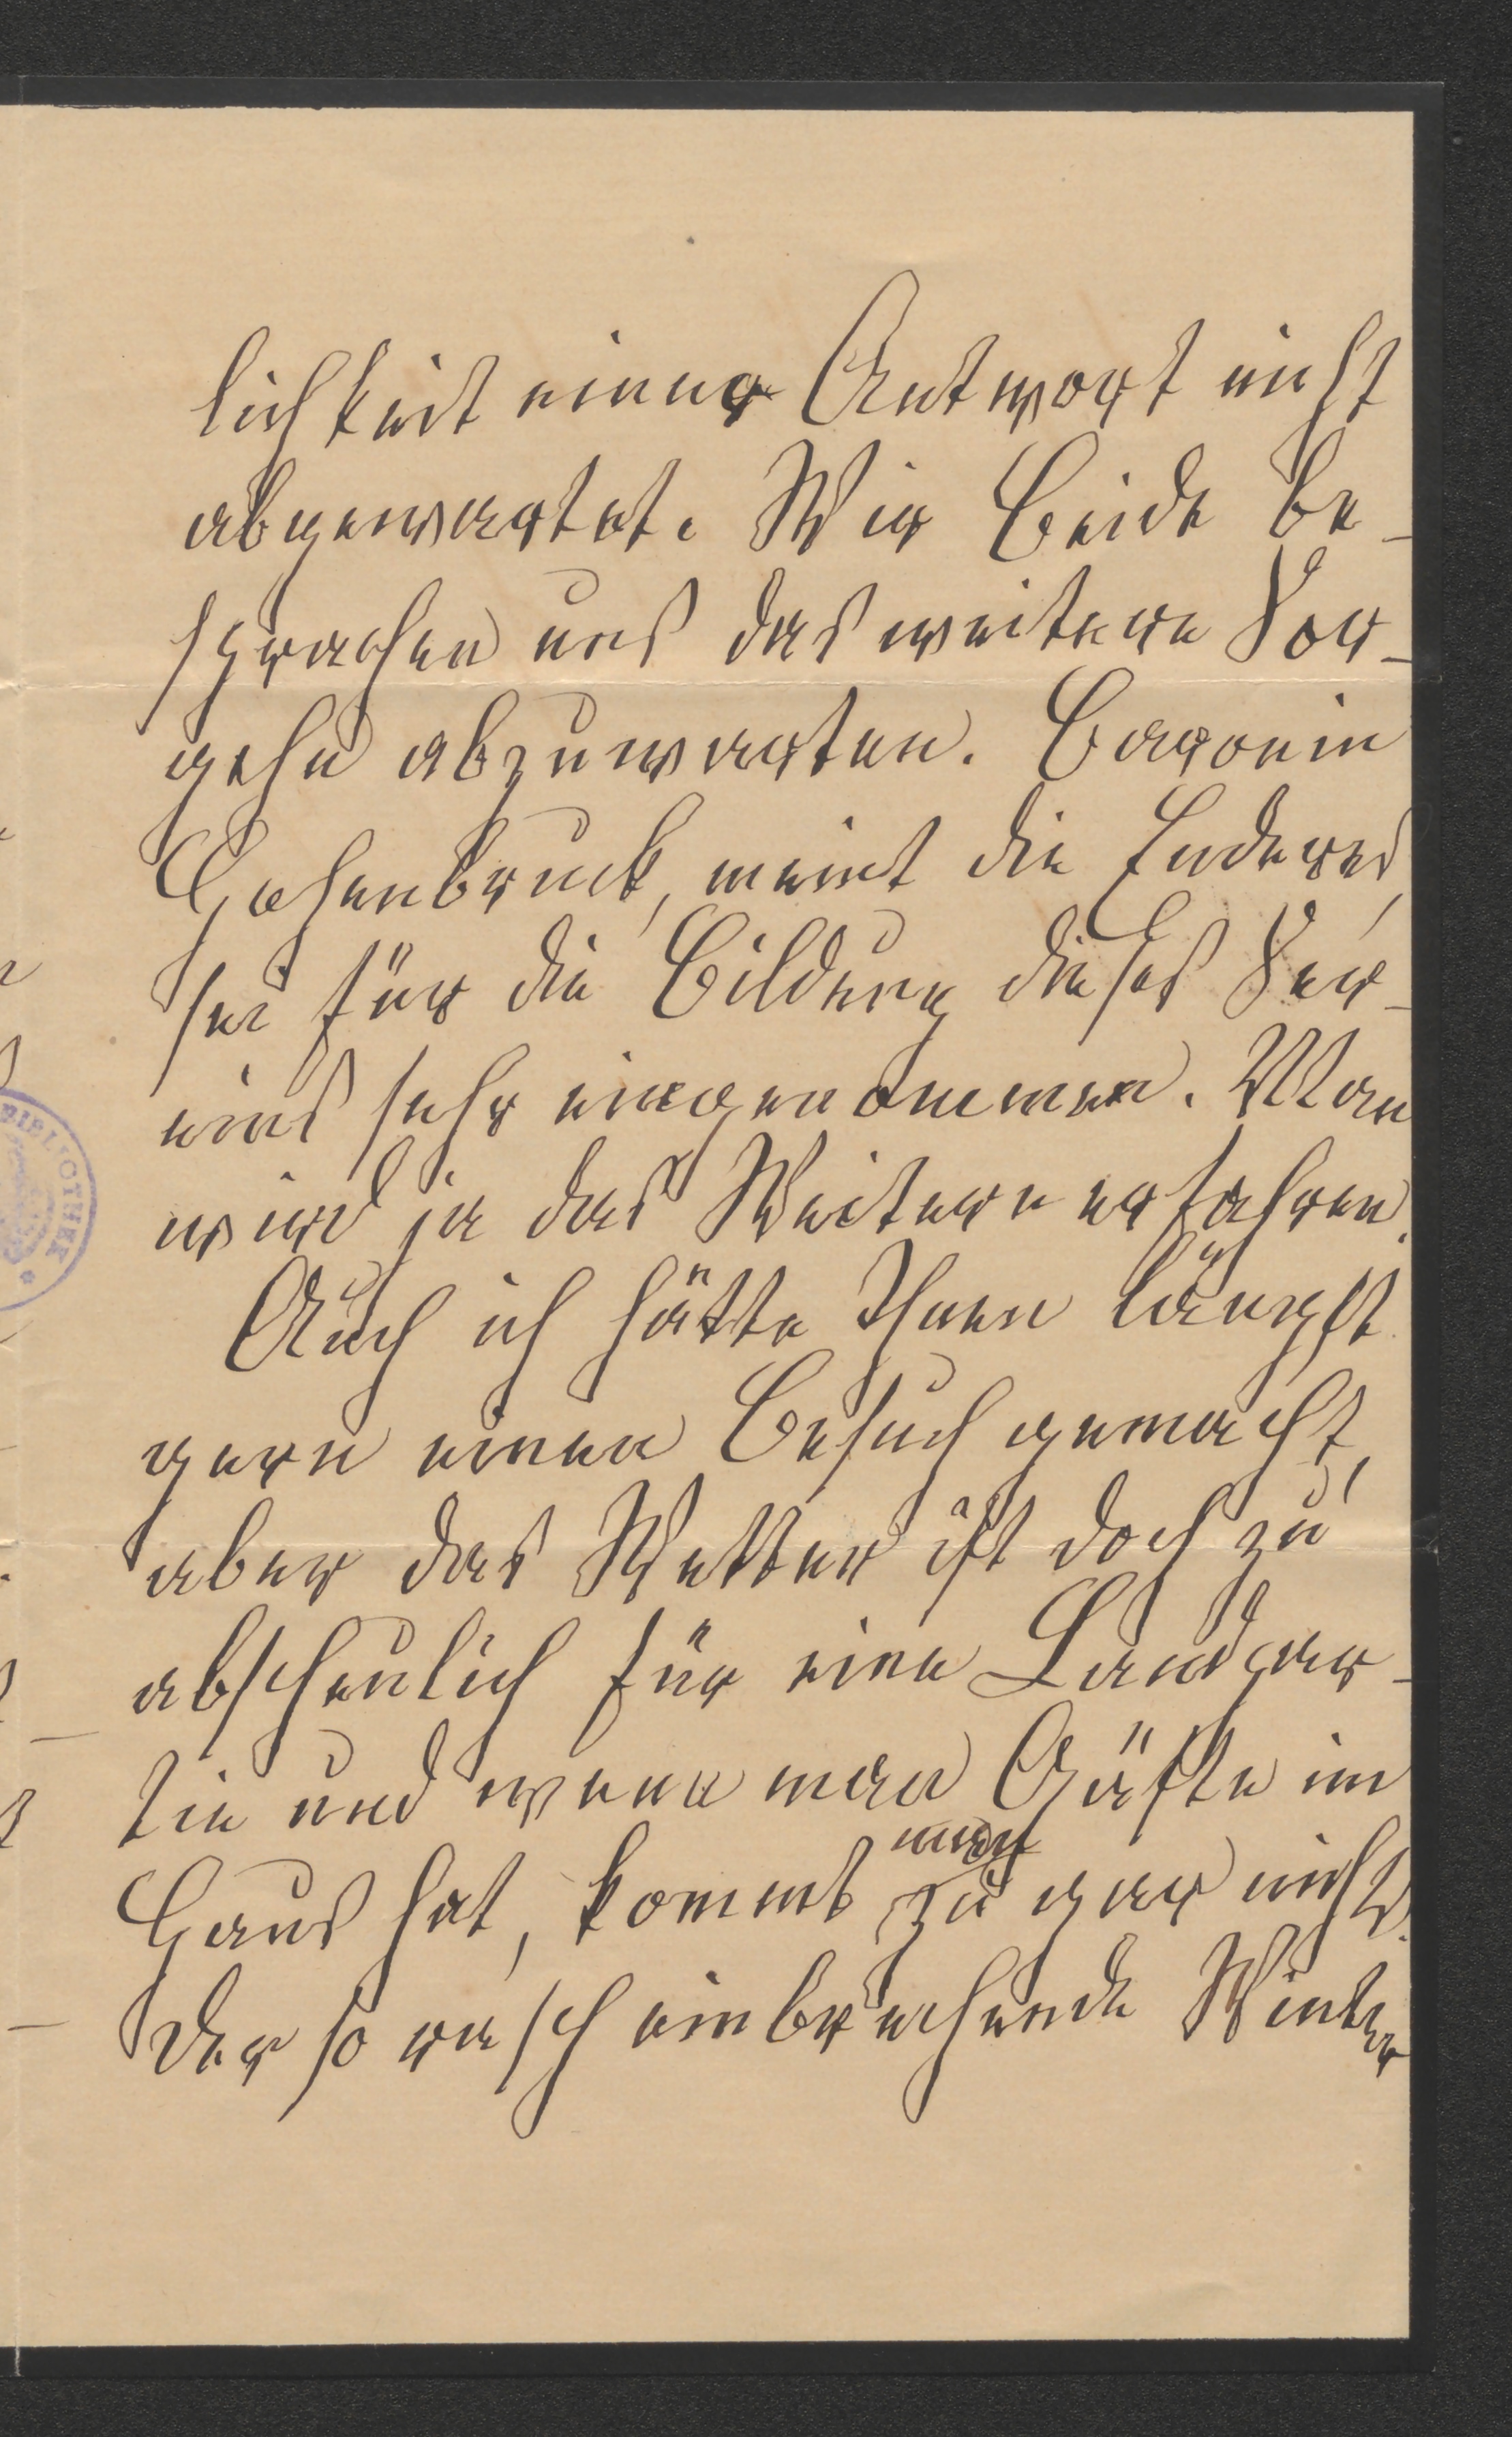 lichkeit einer Antwort nicht
abgewartet. Wir Beide be-
sprachen uns das weitere Vor-
gehn abzuwarten. Baronin
Hohenbruck, meint die Enderes,
sei für die Bildung dieses Ver-
eins sehr eingenommen. Man
wird ja das Weitere erfahren.
Auch ich hätte Ihnen längst
gern einen Besuch gemacht,
aber das Wetter ist doch zu
abscheulich für eine Landpar-
tie und wenn man Gäste im
man
Haus hat, kommt zu gar nichts.
Der so rasch einbrechende Winter
BIBLIOTHEK